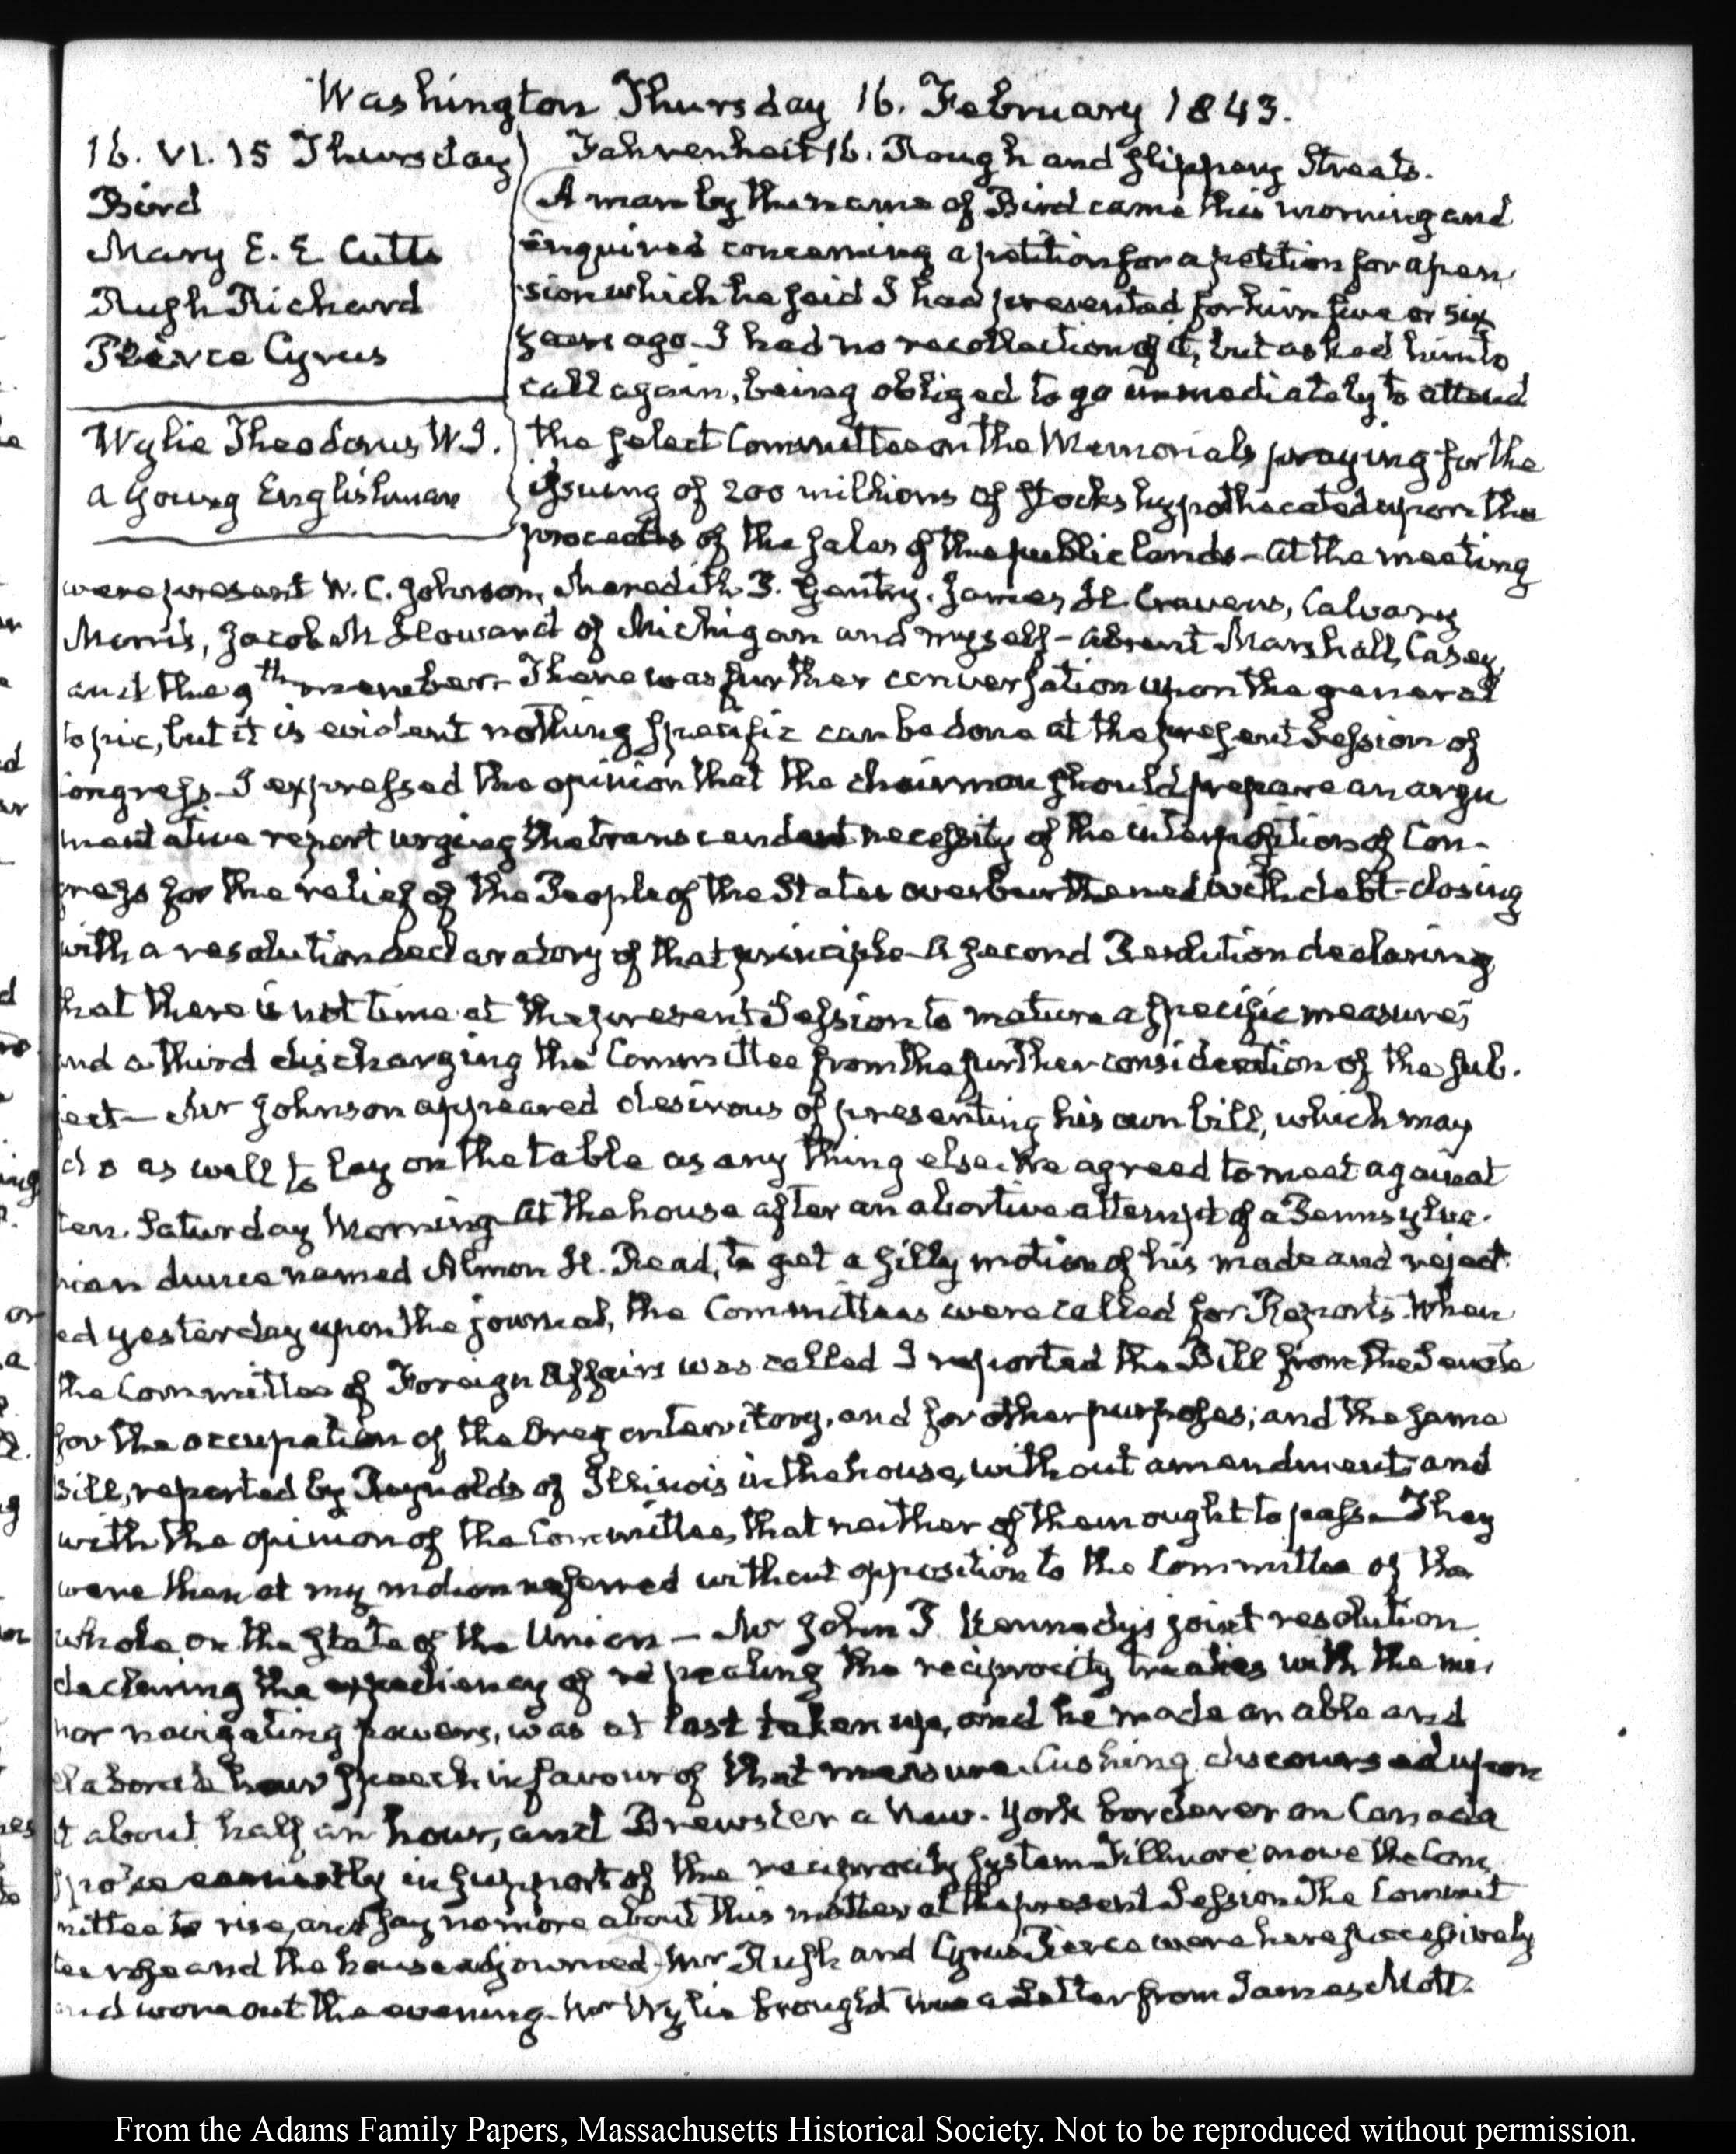 Washington Thursday 16. February 1843.
16. VI. 15 Thursday
Bird
Mary E. E Cutts
Rush Richard
Peirce Cyrus
Wylie Theodorus W. J.
a young Englishman
Fahrenheit 16. Rough and slippery Streets.
A man by the name of Bird came this morning and
enquired concerning a petition for a petition for a pen
sion which he said I had presented for him five or six
years ago. I had no recollection of it, but asked him to
call again, being obliged to go immediately to attend
the select Committee on the Memorials praying for the
issuing of 200 millions of stocks hypothecated upon the
proceeds of the sales of the public lands - At the meeting
were present W. C. Johnson, Meredith P. Gentry, James H. Cravens, Calvary
Morris, Jacob M Howard of Michigan and myself - absent Marshall, Casey,
and the 9th member. There was further conversation upon the general
topic, but it is evident nothing specific can be done at the present Session of
Congress - I expressed the opinion that the chairman should prepare an argu
mentative report urging the transcendent necessity of the interposition of Con-
gress for the relief of the People of the States overburthened with debt - closing
with a resolution declaratory of that principle - A second Resolution declaring
that there is not time at the present Session to mature a specific measure;
and a third discharging the Committee from the further consideration of the sub-
ject - Mr Johnson appeared desirous of presenting his own bill, which may
do as well to lay on the table as any thing else. We agreed to meet again at
ten. Saturday Morning - At the house after an abortive attempt of a Pennsylva-
nian dunce named Almon H. Read, to get a silly motion of his made and reject
ed yesterday upon the journal, the Committees were called for Reports. When
the Committee of Foreign Affairs was called I reported the Bill from the Senate
for the occupation of the Oregon territory, and for other purposes; and the same
bill, reported by Reynolds of Illinois in the house, without amendment, and
with the opinion of the Committee, that neither of them ought to pass - They
were then at my motion referred without opposition to the Committee of the
whole on the state of the Union - Mr John P. Kennedy's joint resolution
declaring the expediency of repealing the reciprocity treaties with the mi-
nor navigating powers, was at last taken up, and he made an able and
elaborate hour speech in favour of that measure. Cushing discoursed upon
it about half an hour, and Brewster a New-York borderer on Canada
spoke earnestly in support of the reciprocity system - Fillmore move the Com
mittee to rise, and say no more about this matter at the present Session. The Commit
tee rose and the house adjourned - Mr Rush and Cyrus Peirce were here successively
and wore out the evening. Mr Wylie brought me a Letter from James Mott.
From the Adams Family Papers, Massachusetts Historical Society. Not to be reproduced without permission.